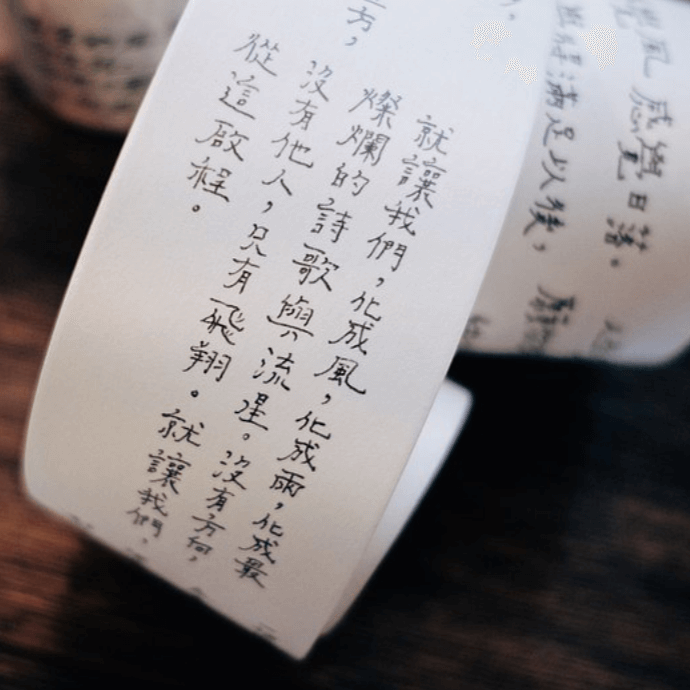 風 感覺日落。
得滿足以後，
方，
就讓我們，化成風，化成雨，化成最
燦爛的詩歌與流星。沒有方向，
沒有他人，只有飛翔。就讓我們，
從這啟程。